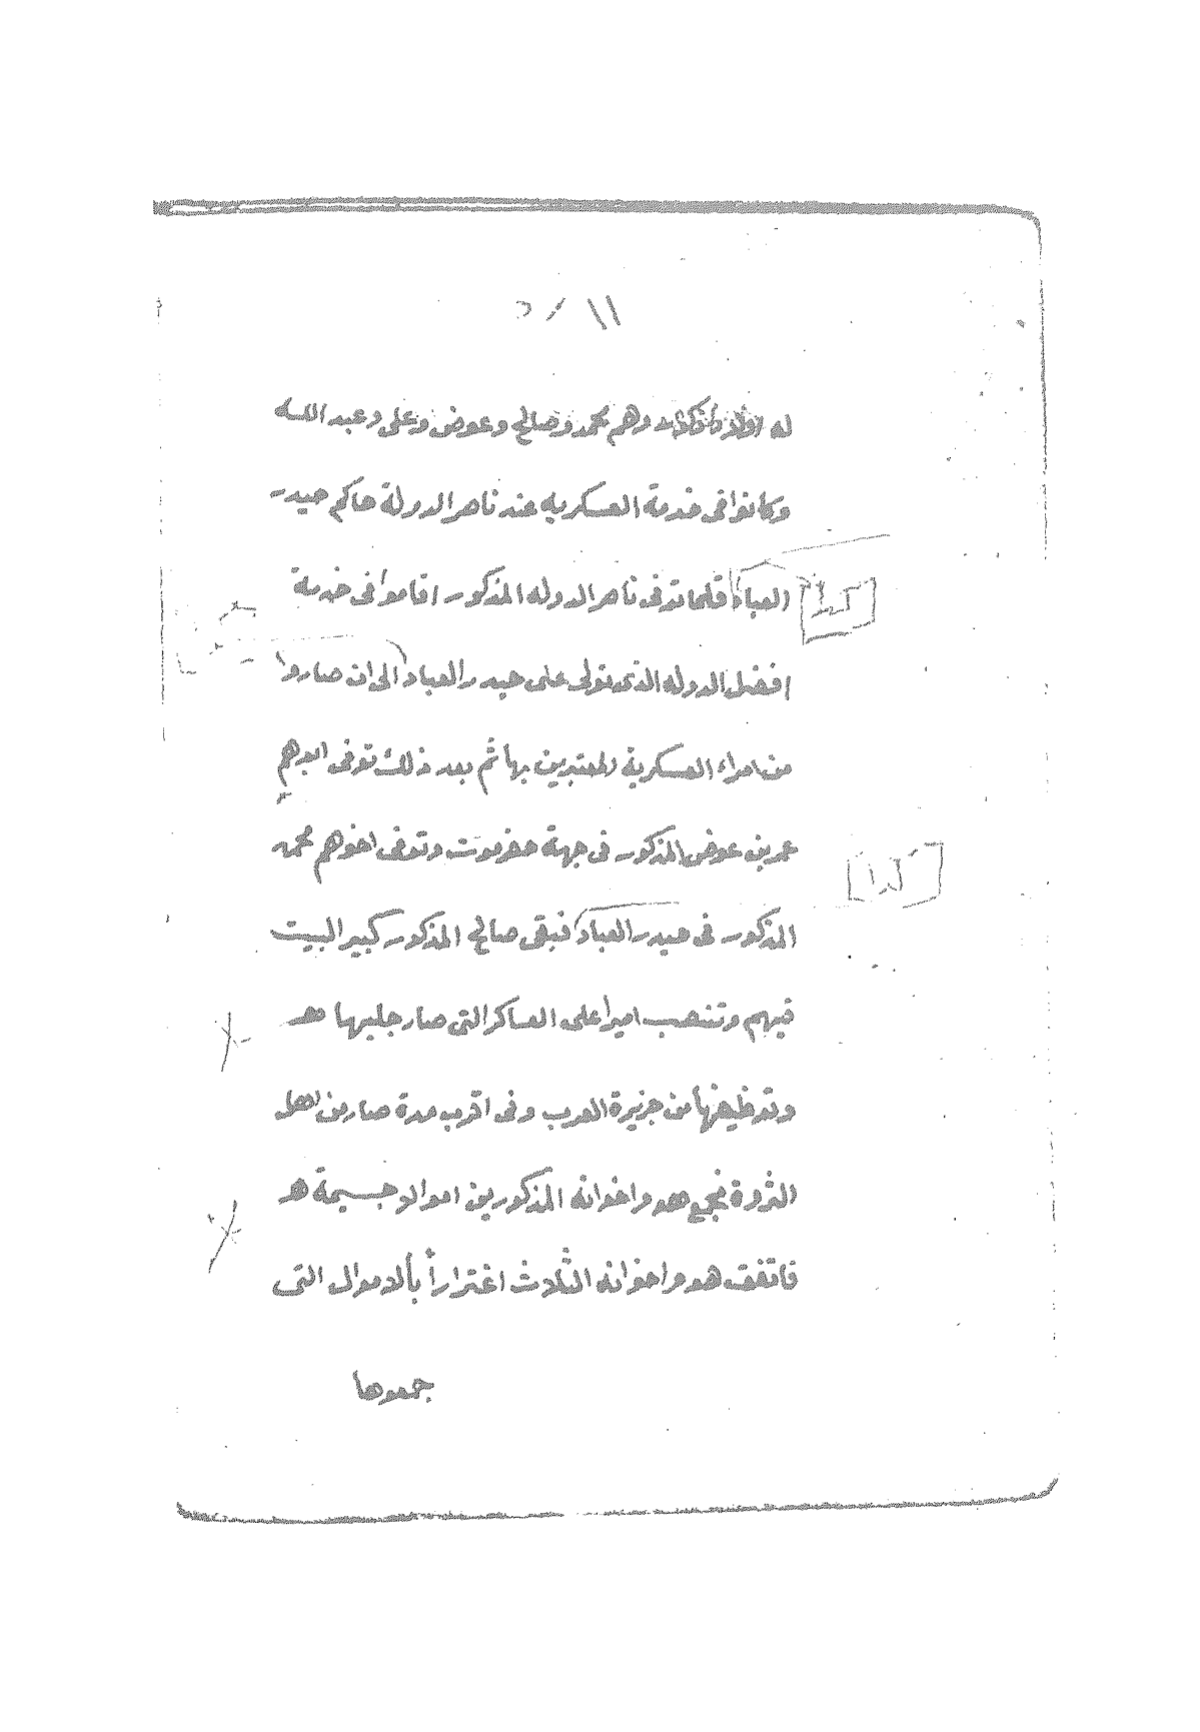 له اولاد ذكور وهم محمد وصالح وعوض وعلى وعبد الله
وكانوا فى خدمة العسكريه عند ناصر الدولة حاكم حيدر
العباد فلما توفى ناصر الدوله المذكور اقاموا فى خدمة
افضل الدوله الذى تولى على حيدر العباد الى ان صاروا
من امراء العسكرية المعتبرين بها ثم بعد ذلك توفى ابوهم
عمر بن عوض المذكور فى جهة حضرموت وتوفى اخوهم محمد
المذكور فى حيدر العباد فبقى صالح المذكور كبير البيت
فيهم وتنصب اميرا على العساكر التى صار جلبها هـ
وتوظيفها من جزيرة العرب وفى اقرب مدة صار من اهل
الثروة فجمع هو واخوانه المذكورين اموالا جسيمة هـ
فاتفق هو واخوانه الثلاث اغترارا بالاموال التى
جمعوها